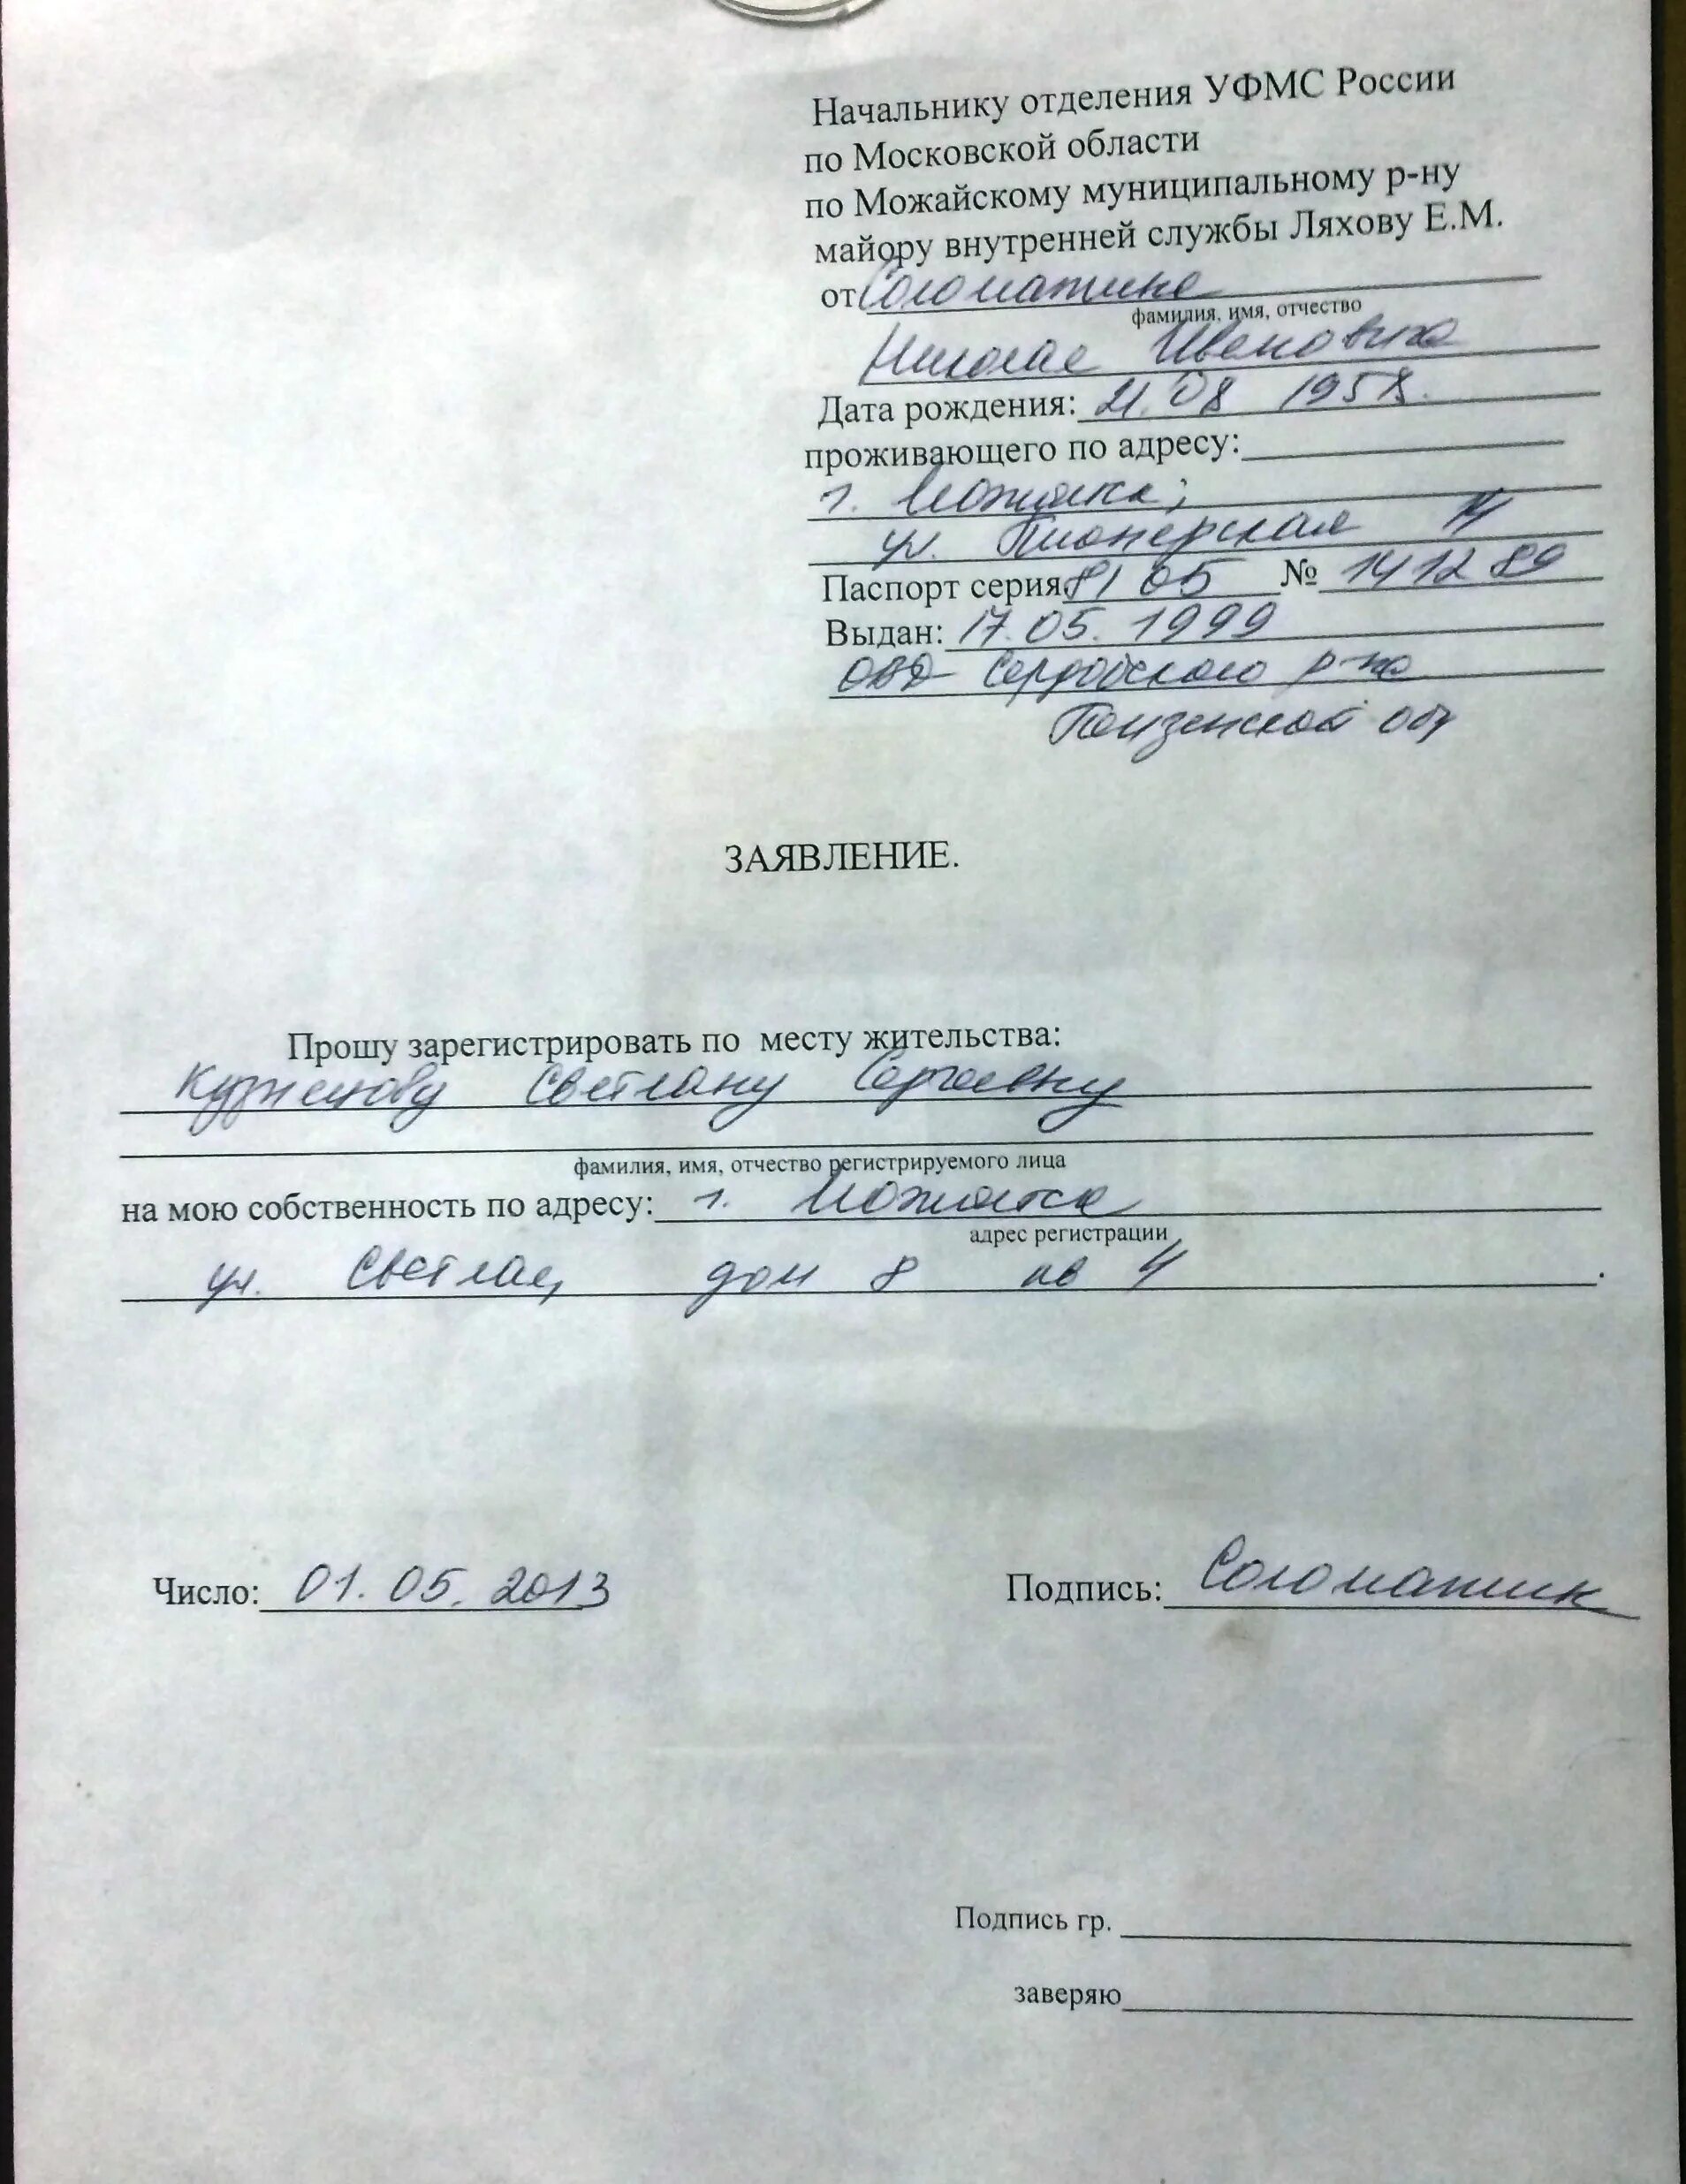 Начальнику отделения УФМС России
по Московской области
по Можайскому муниципальному р-ну
майору внутренней службы Ляхову Е.М.
от Соломатина
фамилия, имя, отчество
Николая Ивановича
Дата рождения: 21.08 1958.
проживающего по адресу:
г. Можайск,
ул. Пионерская 14
Паспорт серия 81 05 № 141289
Выдан: 17.05.1999
ОВД Сердобского р-на
Пензенской обл
ЗАЯВЛЕНИЕ.
Прошу зарегистрировать по месту жительства:
Кузнецову Светлану Сергеевну
фамилия, имя, отчество регистрируемого лица
на мою собственность по адресу: г. Можайск
адрес регистрации
ул. Светлая, дом 8 кв 4.
Число: 01.05.2013 Подпись: Соломатин
Подпись гр.
заверяю